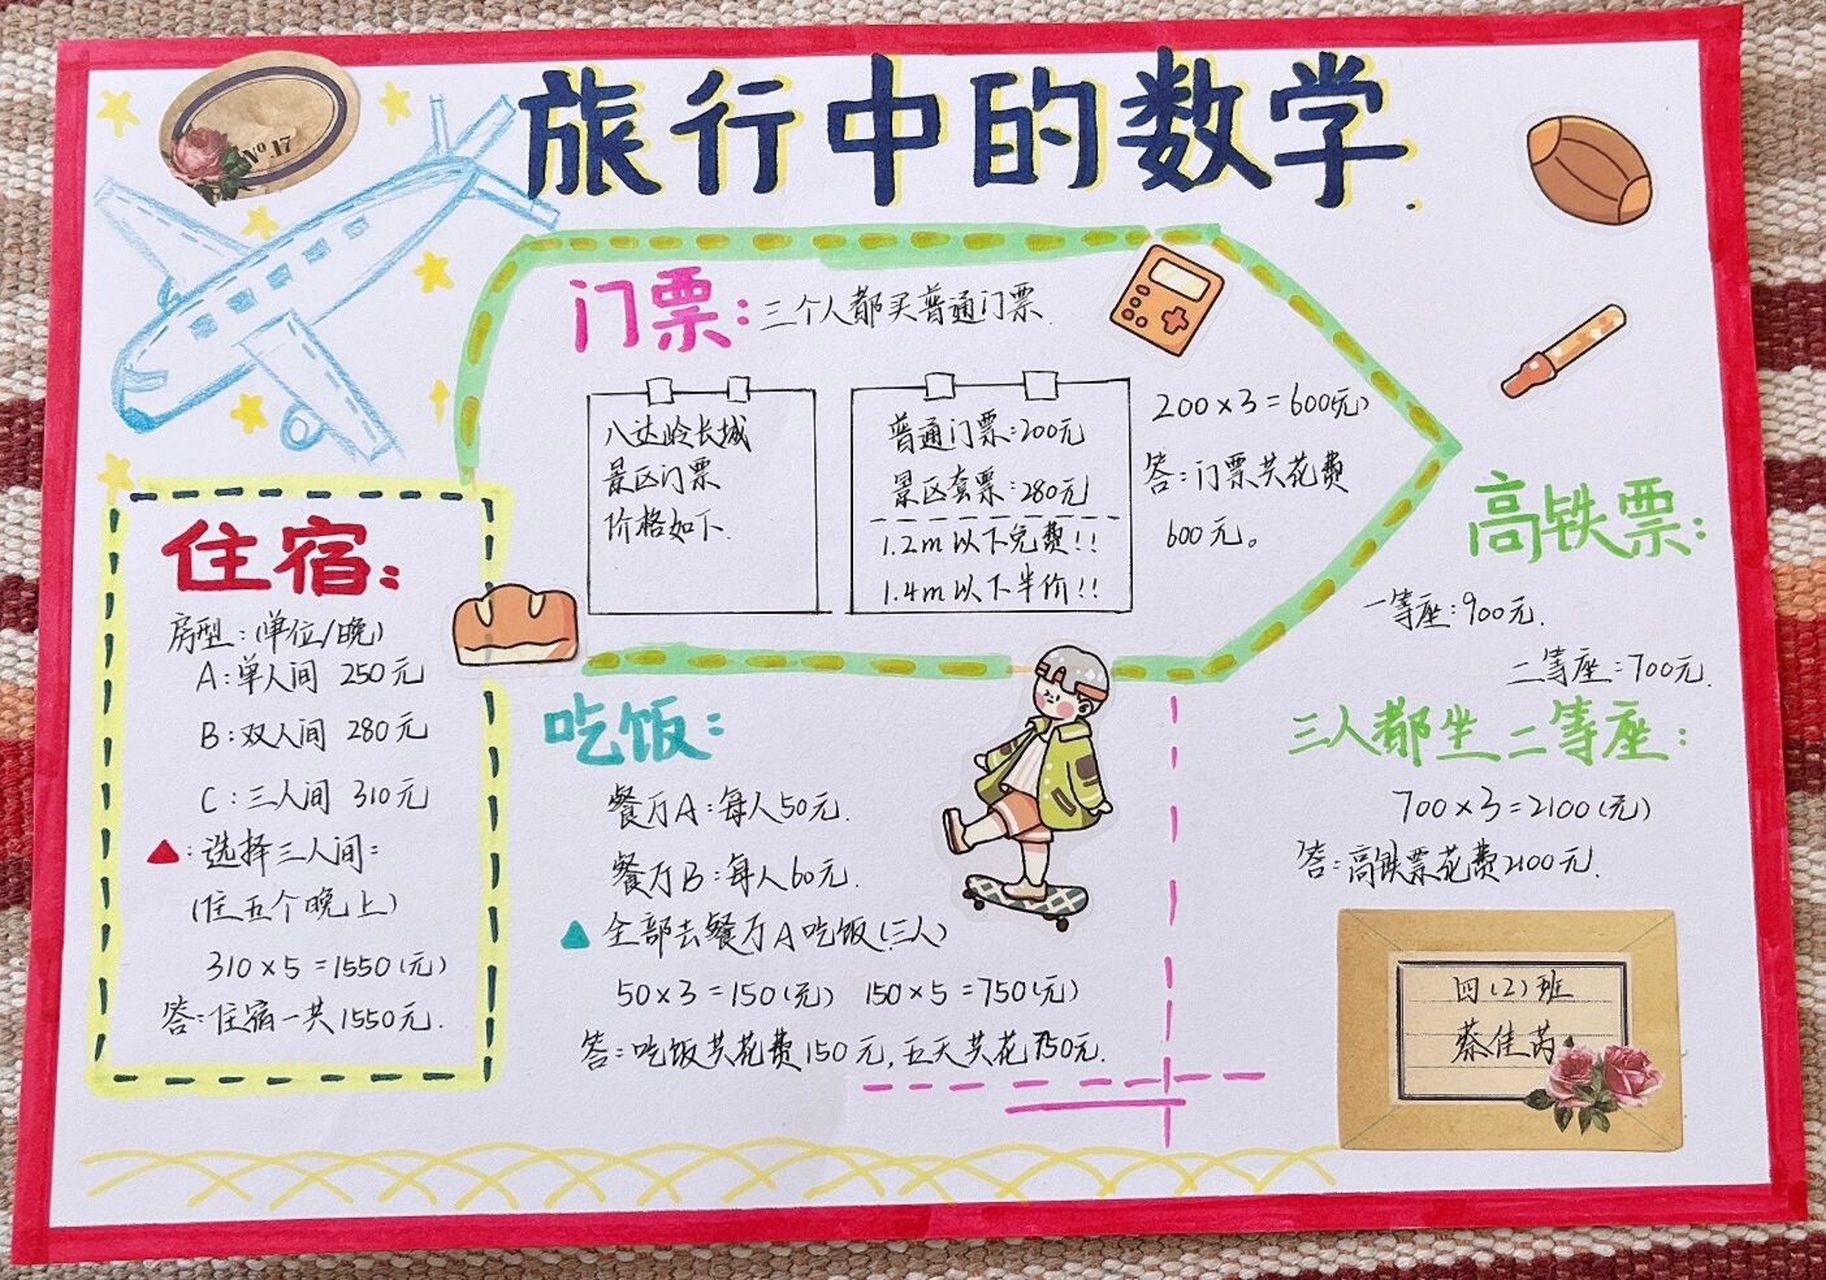 No.17
旅行中的数学.
门票:三个人都买普通门票.
八达岭长城
景区门票
价格如下.
普通门票:200元
景区套票:280元
1.2m以下免费!!
1.4m以下半价!!
200×3=600(元)
答:门票共花费
600元。
住宿:
房型:(单位/晚)
A:单人间 250元
B:双人间 280元
C:三人间 310元
▲:选择三人间:
(住五个晚上)
310×5=1550(元)
答:住宿一共1550元.
吃饭:
餐厅A:每人50元.
餐厅B:每人60元.
▲全部去餐厅A吃饭(三人)
50×3=150(元) 150×5=750(元)
答:吃饭共花费150元,五天共花750元.
高铁票:
一等座:900元.
二等座:700元.
三人都坐二等座:
700×3=2100(元)
答:高铁票花费2100元.
四(2)班
蔡佳芮